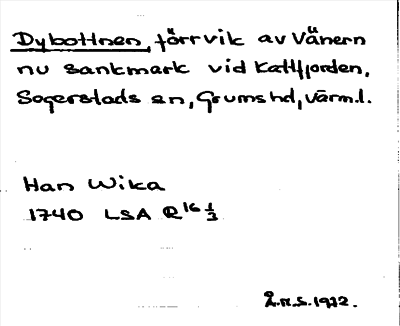 Dybottnen, förrvik av Vänern
nu sankmark vid Kattfjorden,
Segerstads sn, Grums hd, Värml.
Han Wika
1740 LSA R16 1/3
Å.H.S. 1922.